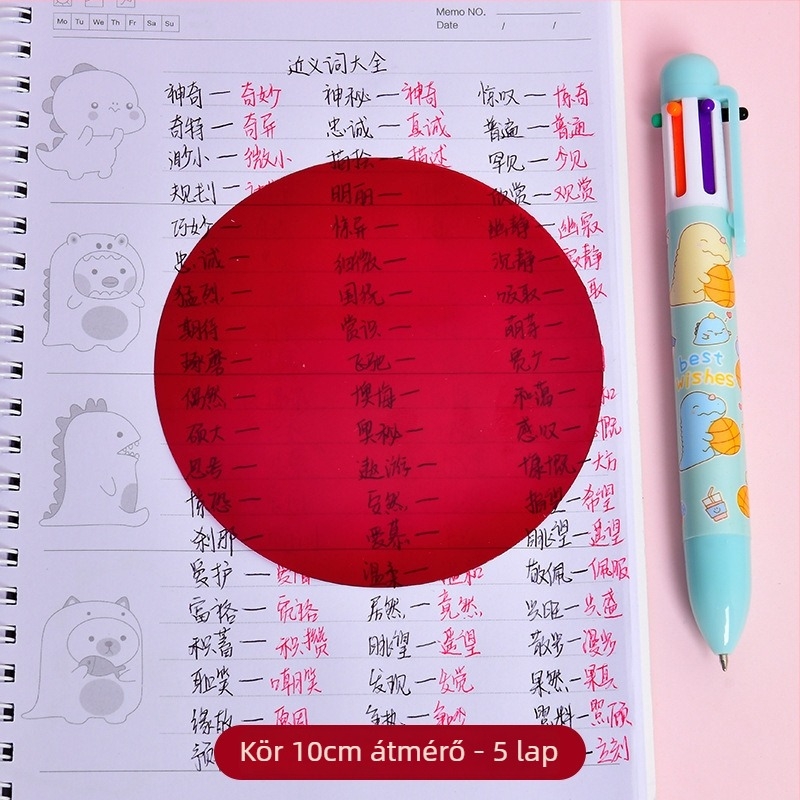 Memo NO.
Mo Tu We Th Fr Sa Su
Date / /
近义词大全
神奇—奇妙 神秘—神奇 惊叹—惊奇
奇特—奇异 忠诚—真诚 普遍—普通
渺小—微小 描绘—描述 罕见—少见
规划— 明丽— 欣赏—观赏
巧妙— 惊异— 幽静—幽寂
忠诚— 细微— 沉静—寂静
猛烈— 吸取—取
期待— 赏识— 萌芽—
琢磨— 飞驰— 宽广—
偶然— 懊悔— 和蔼—和
硕大— 奥秘— 感叹—慨
思考— 遨游— 慷慨—大方
惊恐— 指望—希望
刹那— 爱慕— 眺望—遥望
爱护— 温柔— 敬佩—佩服
富裕—充裕 居然—竟然 兴旺—兴盛
积蓄—积攒 眺望—遥望 散步—漫步
耻笑—嘲笑 发现—发觉 果然—果真
缘故—原因 照料—照顾
立刻
best
wishes
Kör 10cm átmérő - 5 lap